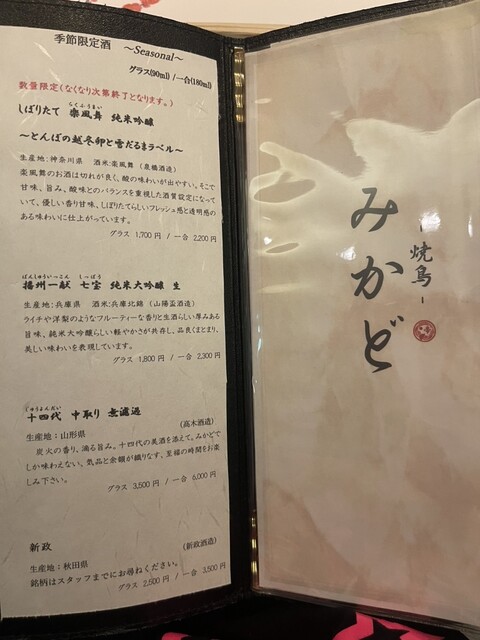 季節限定酒 ～Seasonal～
グラス(90ml) / 一合(180ml)
数量限定(なくなり次第終了となります。)
しぼりたて 楽風舞 純米吟醸
らくふうまい
～とんぼの越冬卵と雪だるまラベル～
生産地：神奈川県 酒米：楽風舞 (泉橋酒造)
楽風舞のお酒は切れが良く、酸の味わいが出やすい。そこで
甘味、旨み、酸味とのバランスを重視した酒質設定になって
いて、優しい香り甘味、しぼりたてらしいフレッシュ感と透明感の
ある味わいに仕上がっています。
グラス 1,700円 / 一合 2,200円
ばんしゅういっこん しっぽう
播州一献 七宝 純米大吟醸 生
生産地：兵庫県 酒米：兵庫北錦 (山陽盃酒造)
ライチや洋梨のようなフルーティーな香りと生酒らしい厚みある
旨味、純米大吟醸らしい軽やかさが共存し、品良くまとまり、
美しい味わいを表現しています。
グラス 1,800円 / 一合 2,300円
じゅうよんだい
十四代 中取り 無濾過
生産地：山形県 (高木酒造)
炭火の香り、滴る旨み。十四代の美酒を添えて。みかどで
しか味わえない、気品と余韻が織りなす、至福の時間をお楽
しみ下さい。
グラス 3,500円 / 一合 6,000円
新政 (新政酒造)
生産地：秋田県
銘柄はスタッフまでにお尋ねください。
グラス 2,500円 / 一合 3,500円
焼鳥
みかど